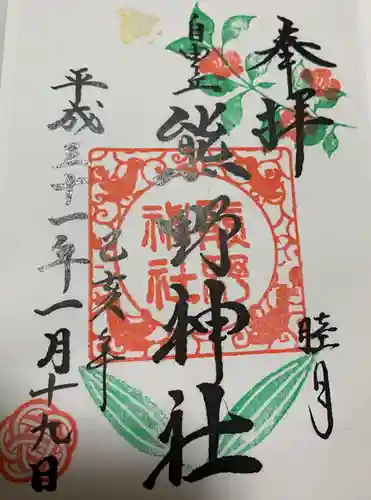 奉拝
睦月
自由が丘
熊野神社
熊野神社
己亥年
平成三十一年一月十九日